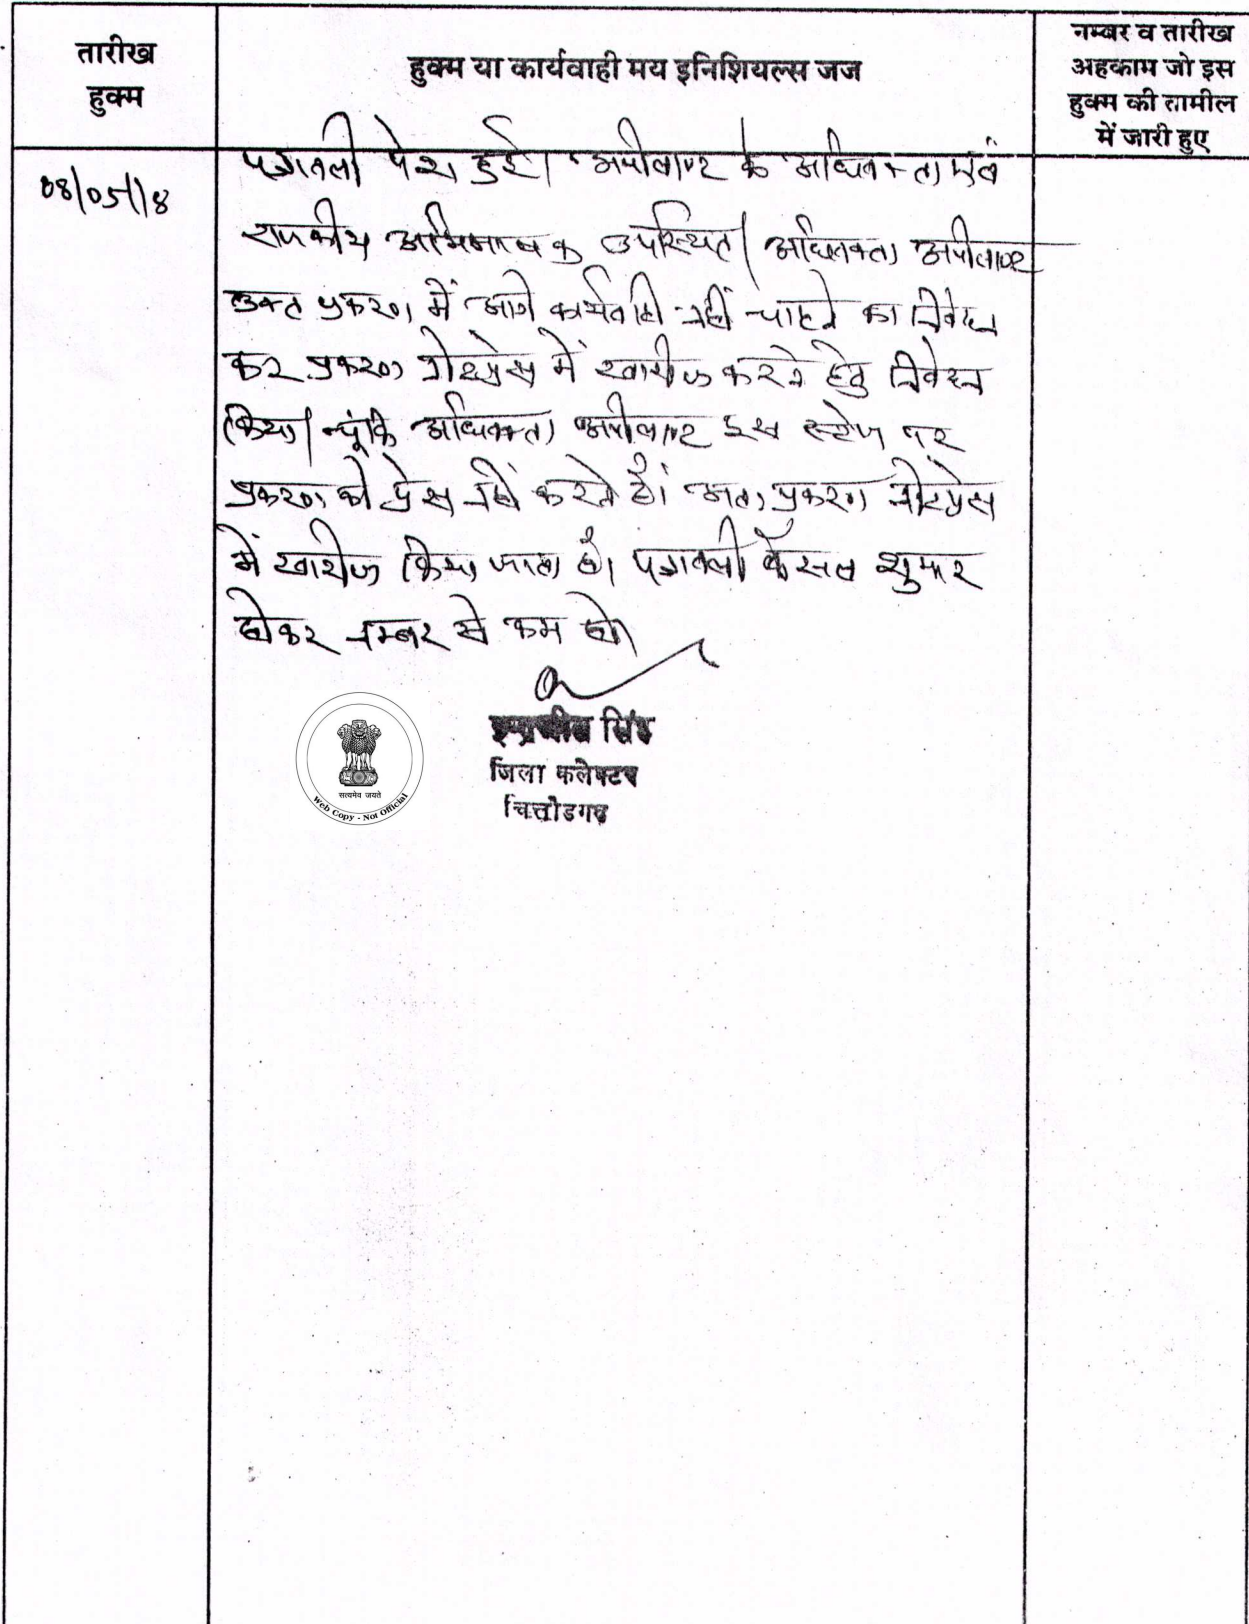 तारीख
हुक्म
हुक्म या कार्यवाही मय इनिशियल्स जज
नम्बर व तारीख
अहकाम जो इस
हुक्म की तामील
में जारी हुए
08/05/18
पत्रावली पेश हुई। अपीलाण्ट के अधिवक्ता एवं
राजकीय अभिभाषक उपस्थित। अधिवक्ता अपीलाण्ट
उक्त प्रकरण में आगे कार्यवाही नहीं चाहने का निवेदन
कर प्रकरण नोटप्रेस में खारीज करने हेतु निवेदन
किया। चूंकि अधिवक्ता अपीलाण्ट इस स्टेज पर
प्रकरण को प्रेस नहीं करते है। अतः प्रकरण नोटप्रेस
में खारीज किया जाता है। पत्रावली फैसल शुमार
होकर नम्बर से कम हो।
सिंह
जिला कलेक्टर
चित्तोडगढ
सत्यमेव जयते
Web Copy - Not Official